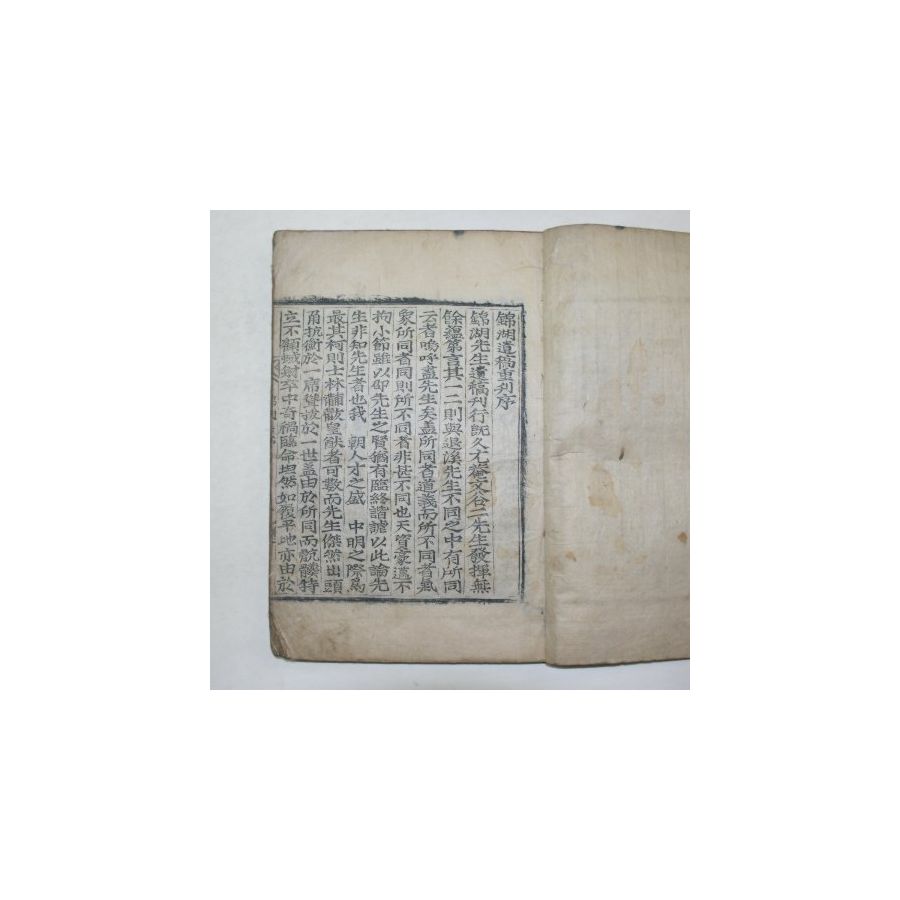 錦湖遺稿重刋序
錦湖先生遺稿刋行旣久尤菴文谷二先生發揮無
餘蘊第言其一二則與退溪先生不同之中有所同
云者嗚呼盡先生矣盖所同者道義而所不同者氣
象所同者同則所不同者非甚不同也天資豪邁不
拘小節雖以邵先生之賢猶有臨終諧謔以此論先
生非知先生者也我 朝人才之盛 中明之際爲
最其柯則士林黼黻皇猷者可數而先生傑然出頭
角抗衡於一席聳拔於一世盖由於所同而骯髒特
立不顧蜮射卒中奇禍臨命坦然如履平地亦由於